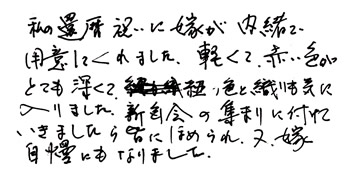 私の還暦祝いに嫁が内緒で
用意してくれました。軽くて、赤い色が
とても深くて、色と織りも気に
入りました。新年会の集まりに付けて
いきましたら皆にほめられ、又、嫁
自慢にもなりました。